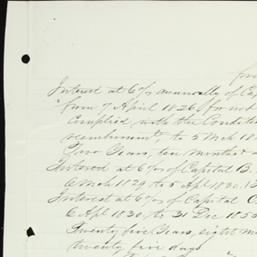 Interest at 6% annually of Ca
"from 7 April 1826 (for not
complied with the Condit
reemburment to 5 Mch 18
Two Years, ten months &
Interest at 6% of Capital B.
6 Mch 1829 to 5 Apl 1830. 1
Interest at 6% of Capital C
6 Apl 1830, to 31 Dec 1855
Twenty five Years, eight m
twenty five days